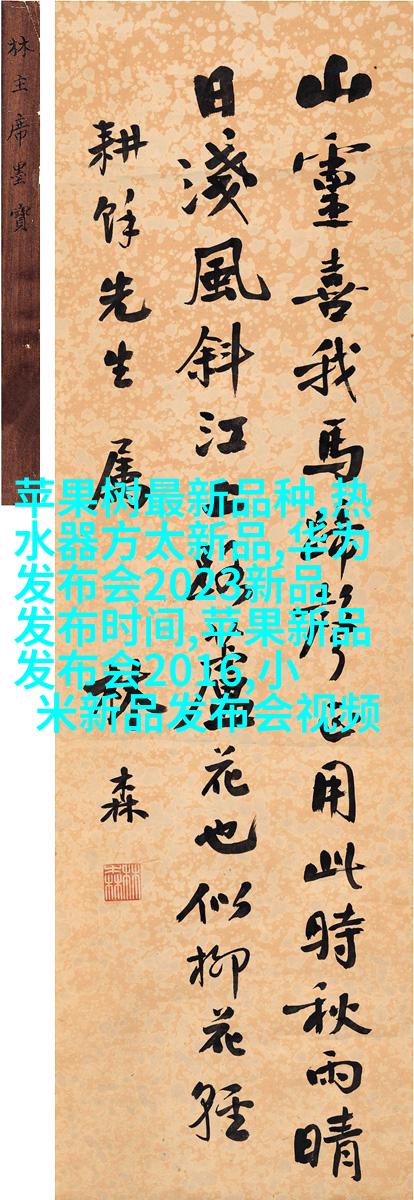 山靈喜我馬蹄聲已用此時秋雨晴
日淺風斜江上路蘆花也似柳花輕
耕餘先生 属 林森
林主席墨寶
苹果树最新品种,热
水器方太新品,华为
发布会2023新品
发布时间,苹果新品
发布会2016,小
米新品发布会视频